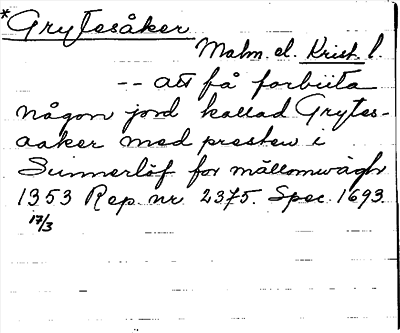 *Grytesåker
Malm. el. Krist. l.
-- att få forbiita
någon jord kallad Grytes-
aaker med presten i
Simmerlöf for mållomvägh
1353 Rep. nr 2375. Spec. 1693.
17/3